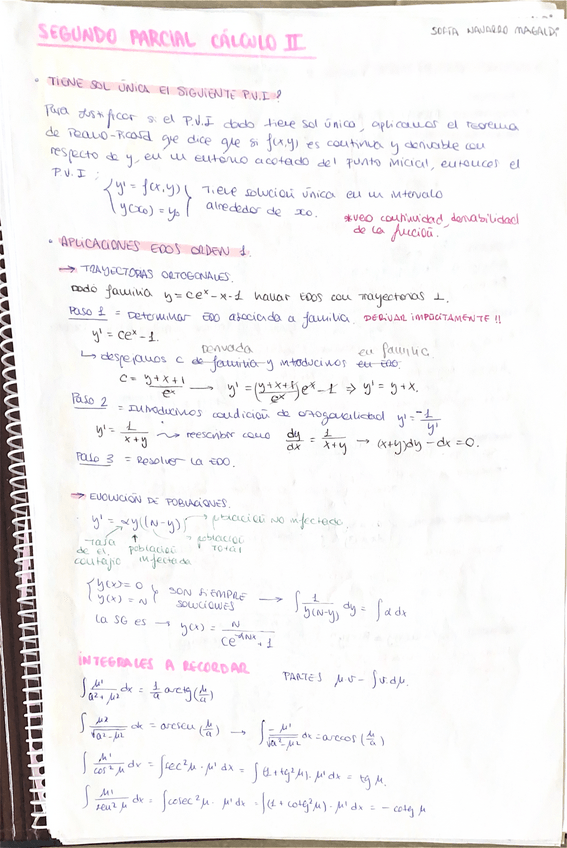 SEGUNDO PARCIAL CÁLCULO II
SOFÍA NAVARRO MAGALDI
• TIENE SOL ÚNICA EL SIGUIENTE P.V.I?
Para justificar si el P.V.I dado tiene sol única, aplicamos el teorema
de Peano-Picard que dice que si f(x,y) es continua y derivable con
respecto de y, en un entorno acotado del punto inicial, entonces el
P.V.I: { y' = f(x,y) Tiene solución única en un intervalo
y(x₀) = y₀ alrededor de x₀.
*veo continuidad, derivabilidad
de la función.
• APLICACIONES EDOS ORDEN 1.
→ TRAYECTORIAS ORTOGONALES.
Dado familia y = ceˣ - x - 1 hallar EDOS con trayectorias ⊥.
Paso 1 = Determinar EDO asociada a familia. DERIVAR IMPLÍCITAMENTE!!
y' = ceˣ - 1.
derivada en familia
↳ despejamos c de familia y introducimos en EDO:
c = (y+x+1)/eˣ → y' = ((y+x+1)/eˣ)eˣ - 1 ⇒ y' = y + x.
Paso 2 = Introducimos condición de ortogonalidad y' = -1/y'
y' = 1/(x+y) ⤳ reescribir como dy/dx = 1/(x+y) → (x+y)dy - dx = 0.
Paso 3 = Resolver la EDO.
→ EVOLUCIÓN DE POBLACIONES.
y' = αy(N-y) → población no infectada
tasa de el contagio
población infectada
población total
{ y(x) = 0
y(x) = N } SON SIEMPRE SOLUCIONES → ∫ 1/(y(N-y)) dy = ∫ α dx
la SG es → y(x) = N/(ce^(-αNx) + 1)
INTEGRALES A RECORDAR
PARTES μv - ∫v.dμ.
∫ μ'/(a²+μ²) dx = 1/a arctg(μ/a)
∫ μ'/√(a²-μ²) dx = arcsen(μ/a) → ∫ -μ'/√(a²-μ²) dx = arccos(μ/a)
∫ μ'/cos²μ dx = ∫sec²μ · μ' dx = ∫(1+tg²μ). μ' dx = tg μ.
∫ μ'/sen²μ dx = ∫cosec²μ · μ' dx = ∫(1+cotg²μ) · μ' dx = - cotg μ